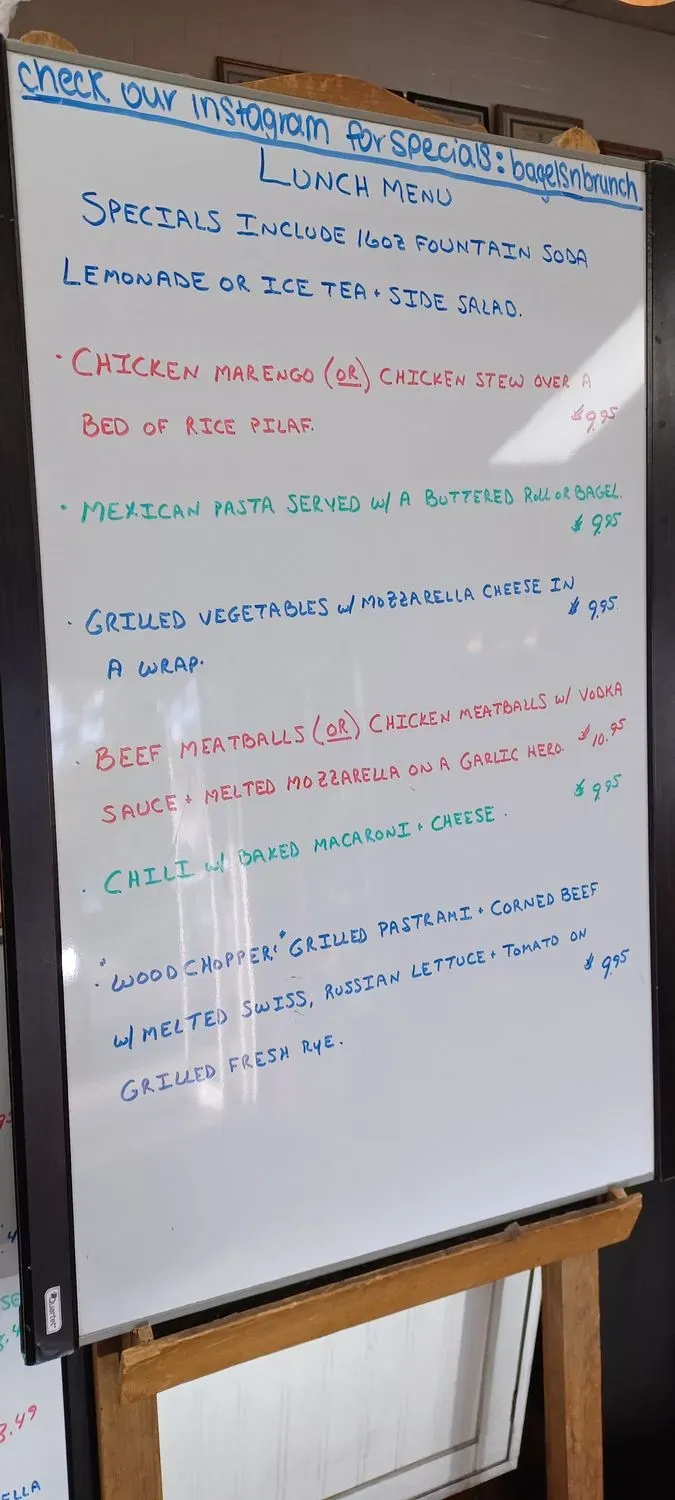 check our instagram for specials: bagelsnbrunch
LUNCH MENU
SPECIALS INCLUDE 16OZ FOUNTAIN SODA
LEMONADE OR ICE TEA + SIDE SALAD.
• CHICKEN MARENGO (OR) CHICKEN STEW OVER A
BED OF RICE PILAF. $9.95
• MEXICAN PASTA SERVED W/ A BUTTERED ROLL OR BAGEL.
$9.95
• GRILLED VEGETABLES W/ MOZZARELLA CHEESE IN
A WRAP. $9.95
• BEEF MEATBALLS (OR) CHICKEN MEATBALLS W/ VODKA
SAUCE + MELTED MOZZARELLA ON A GARLIC HERO. $10.95
• CHILI W/ BAKED MACARONI + CHEESE. $9.95
• "WOODCHOPPER:" GRILLED PASTRAMI + CORNED BEEF
W/ MELTED SWISS, RUSSIAN LETTUCE + TOMATO ON
GRILLED FRESH RYE. $9.95
Quartet
3.49
ELLA